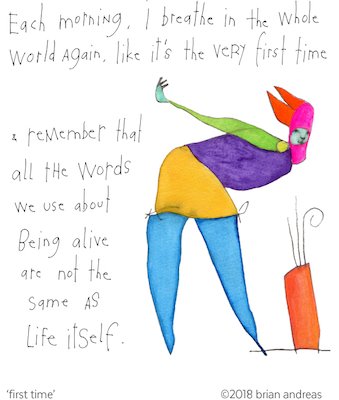 Each morning, I breathe in the whole
world again, like it's the very first time
& remember that
all the words
we use about
Being alive
are not the
same as
Life itself.
'first time'
©2018 brian andreas